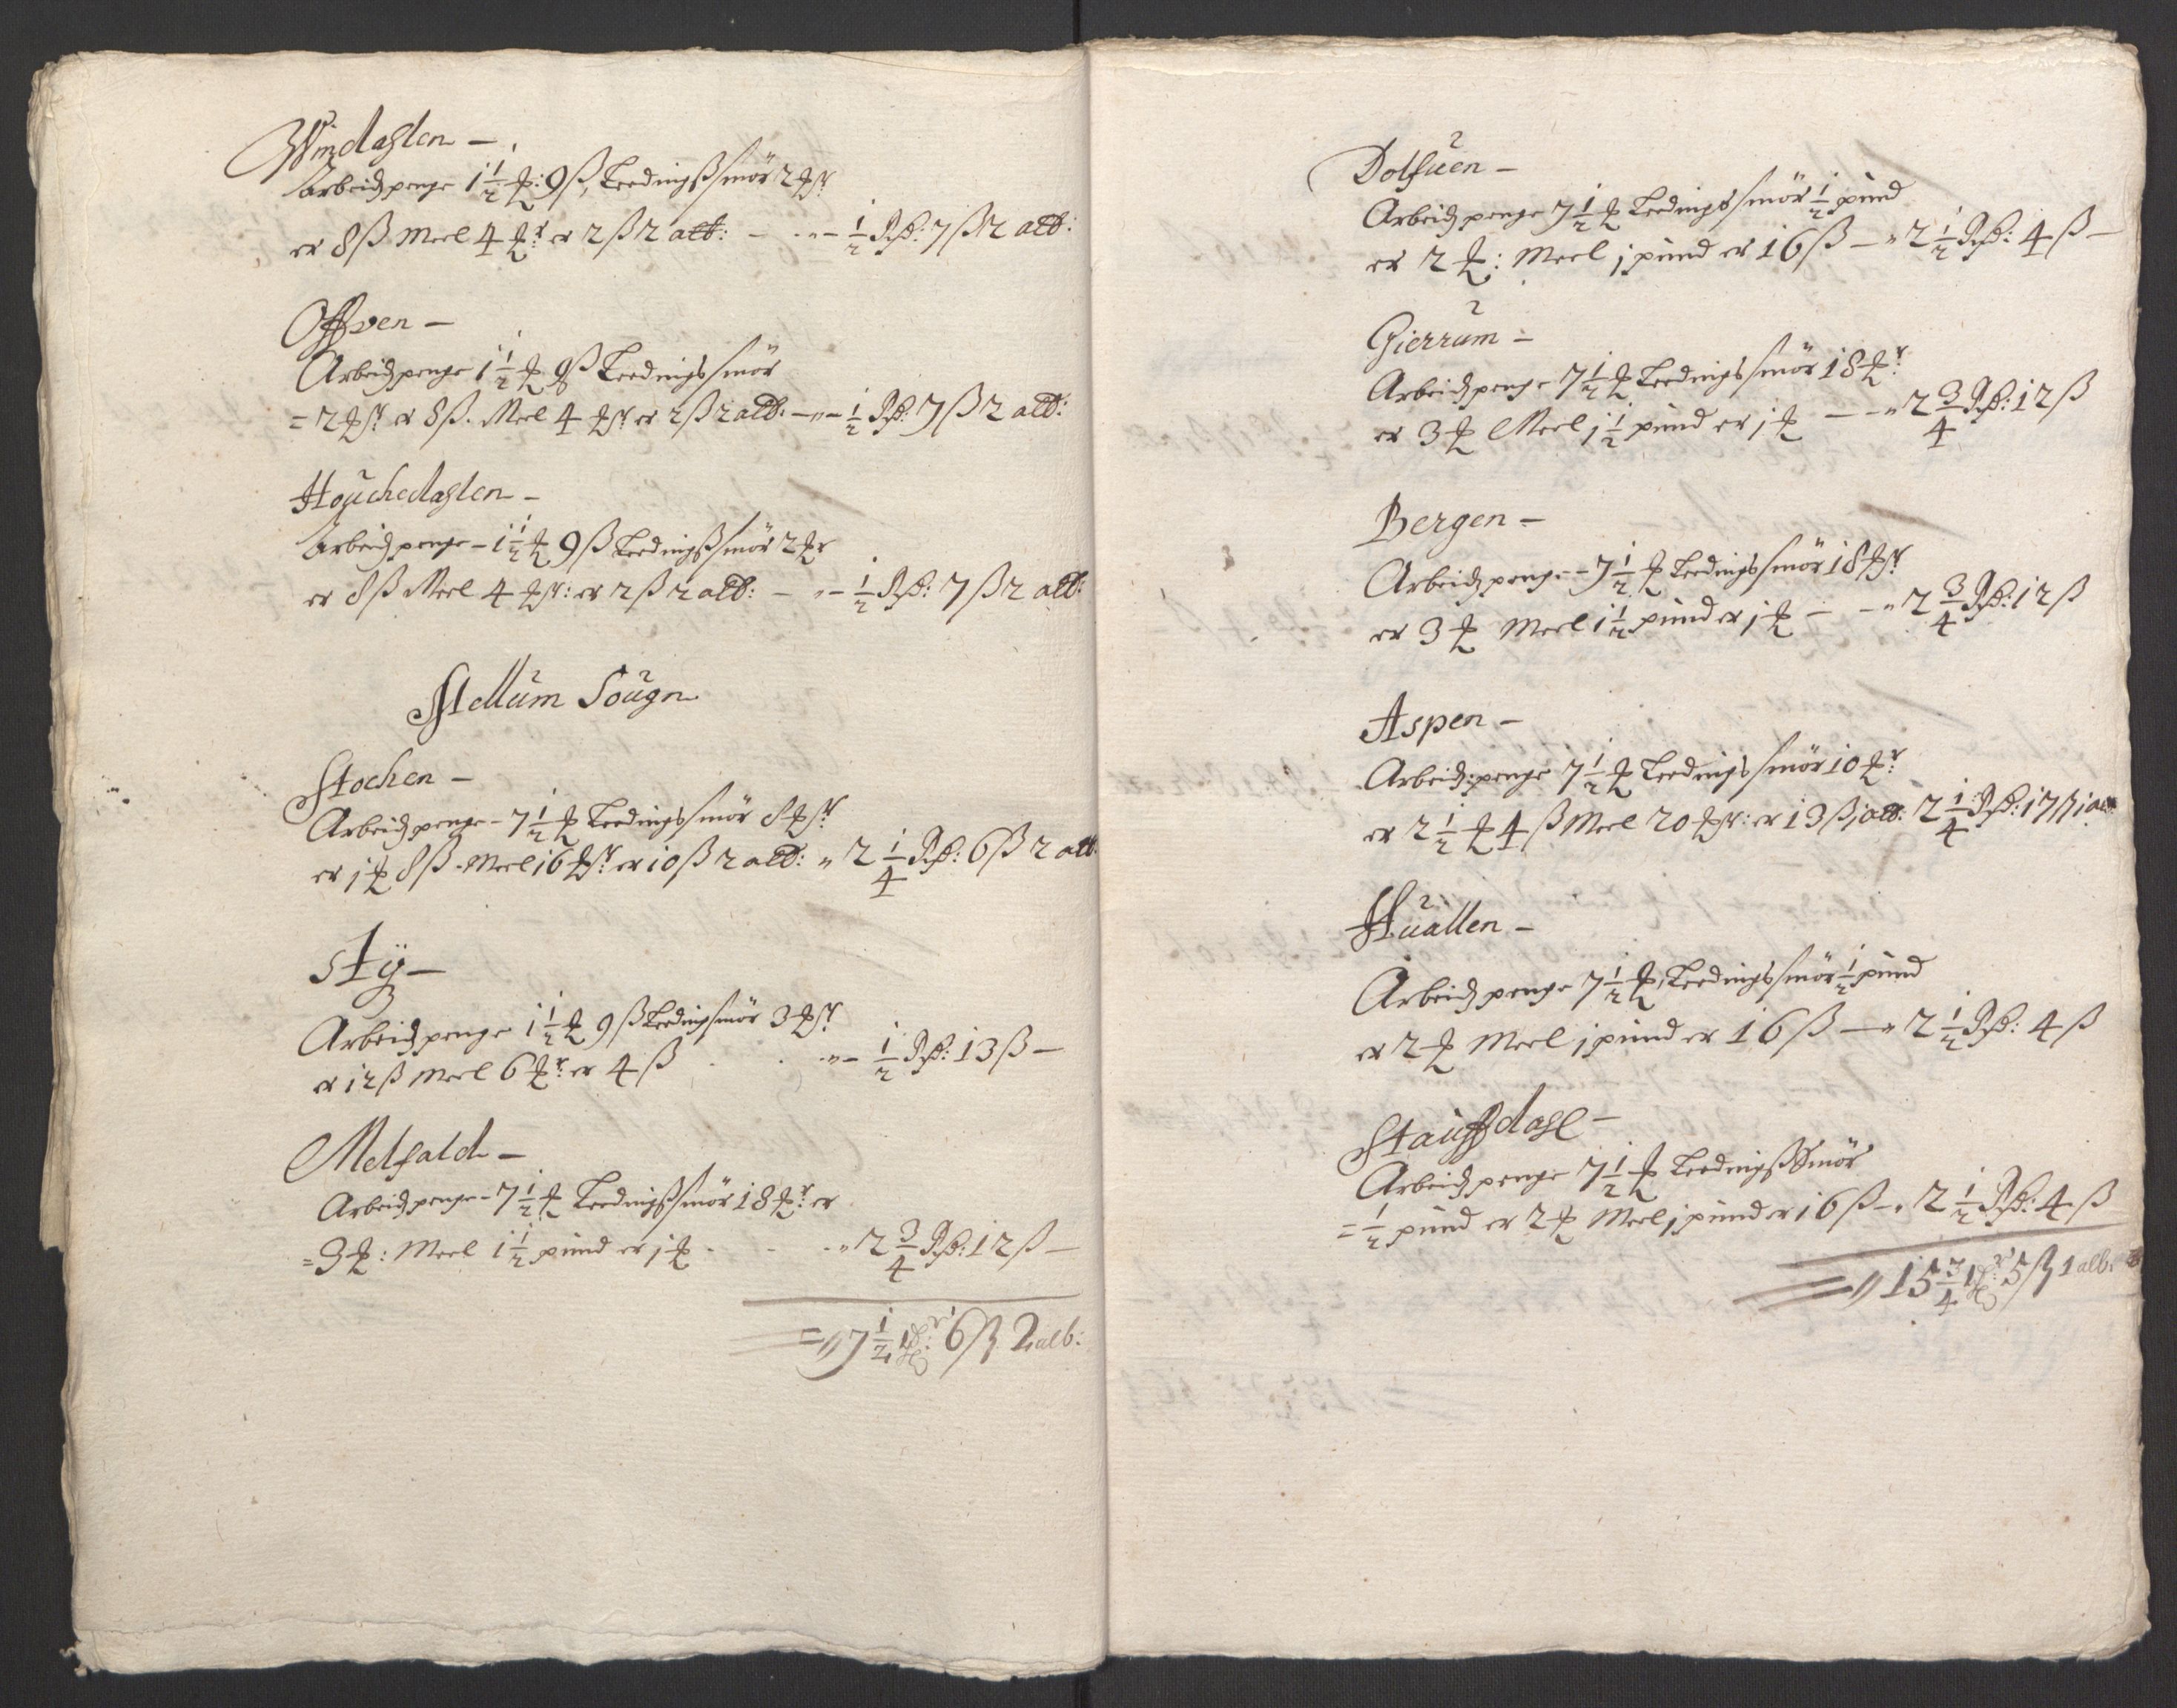 Windaglen –
Arbeidzpenge 1 1/2 ℔: 9 ß, Leedingßsmör 2 ℔r
er 8 ß Meel 4 ℔r er 2 ß 2 alb: – „– 1/2 Rd: 7 ß 2 alb:
Offven –
Arbeidzpenge 1 1/2 ℔ 9 ß Leedingssmör
= 2 ℔r er 8 ß. Meel 4 ℔r er 2 ß 2 alb. – „– 1/2 Rd: 7 ß 2 alb:
Houchedaglen –
Arbeidzpenge – 1 1/2 ℔ 9 ß Leedingßsmör 2 ℔r
er 8 ß Meel 4 ℔r: er 2 ß 2 alb: – „– 1/2 Rd: 7 ß 2 alb:
Sougn
Stochen –
Arbeidzpenge – 7 1/2 ℔ Leedingssmör 8 ℔r
er j ℔ 8 ß. Meel 16 ℔r er 10 ß 2 alb: „ 2 1/4 Rd: 6 ß 2 alb.
Sty –
Arbeidzpenge 1 1/2 ℔ 9 ß Leedingsmör 3 ℔r
er 12 ß Meel 6 ℔r er 4 ß „– 1/2 Rd: 13 ß –
Melfald –
Arbeidzpenge – 7 1/2 ℔ Leedingßsmör 18 ℔r er
= 3 ℔: Meel 1 1/2 pund er j ℔ - - „ 2 3/4 Rd: 12 ß –
= „ 7 1/2 Rdr: 6 ß 2 alb:
Dolfuen –
Arbeidzpenge 7 1/2 ℔ Leedingssmör 1/2 pund
er 2 ℔: Meel j pund er 16 ß – „ 2 1/2 Rd: 4 ß –
Gierrum –
Arbeidzpenge 7 1/2 ℔ Leedingssmör 18 ℔r
er 3 ℔ Meel j 1/2 pund er j ℔ – – „ 2 3/4 Rd: 12 ß
Bergen –
Arbeidzpenge – 7 1/2 ℔ Leedingssmör 18 ℔r
er 3 ℔ Meel 1 1/2 pund er j ℔ – – „ 2 3/4 Rd: 12 ß
Aspen –
Arbeidz:penge 7 1/2 ℔ Leedingssmör 10 ℔r
er 2 1/2 ℔ 4 ß Meel 20 ℔r: er 13 ß j alb: 2 1/4 Rd: 17 ß j alb
Huallen –
Arbeidzpenge 7 1/2 ℔, Leedingssmör 1/2 pund
er 2 ℔ Meel j pund er 16 ß – „ 2 1/2 Rd: 4 ß
Stauffdahl –
Arbeidzpenge 7 1/2 ℔ Leedingßsmör
= 1/2 pund er 2 ℔ Meel j pund er 16 ß – „ 2 1/2 Rd: 4 ß
= „ 15 3/4 Rdr: 5 ß 1 alb: